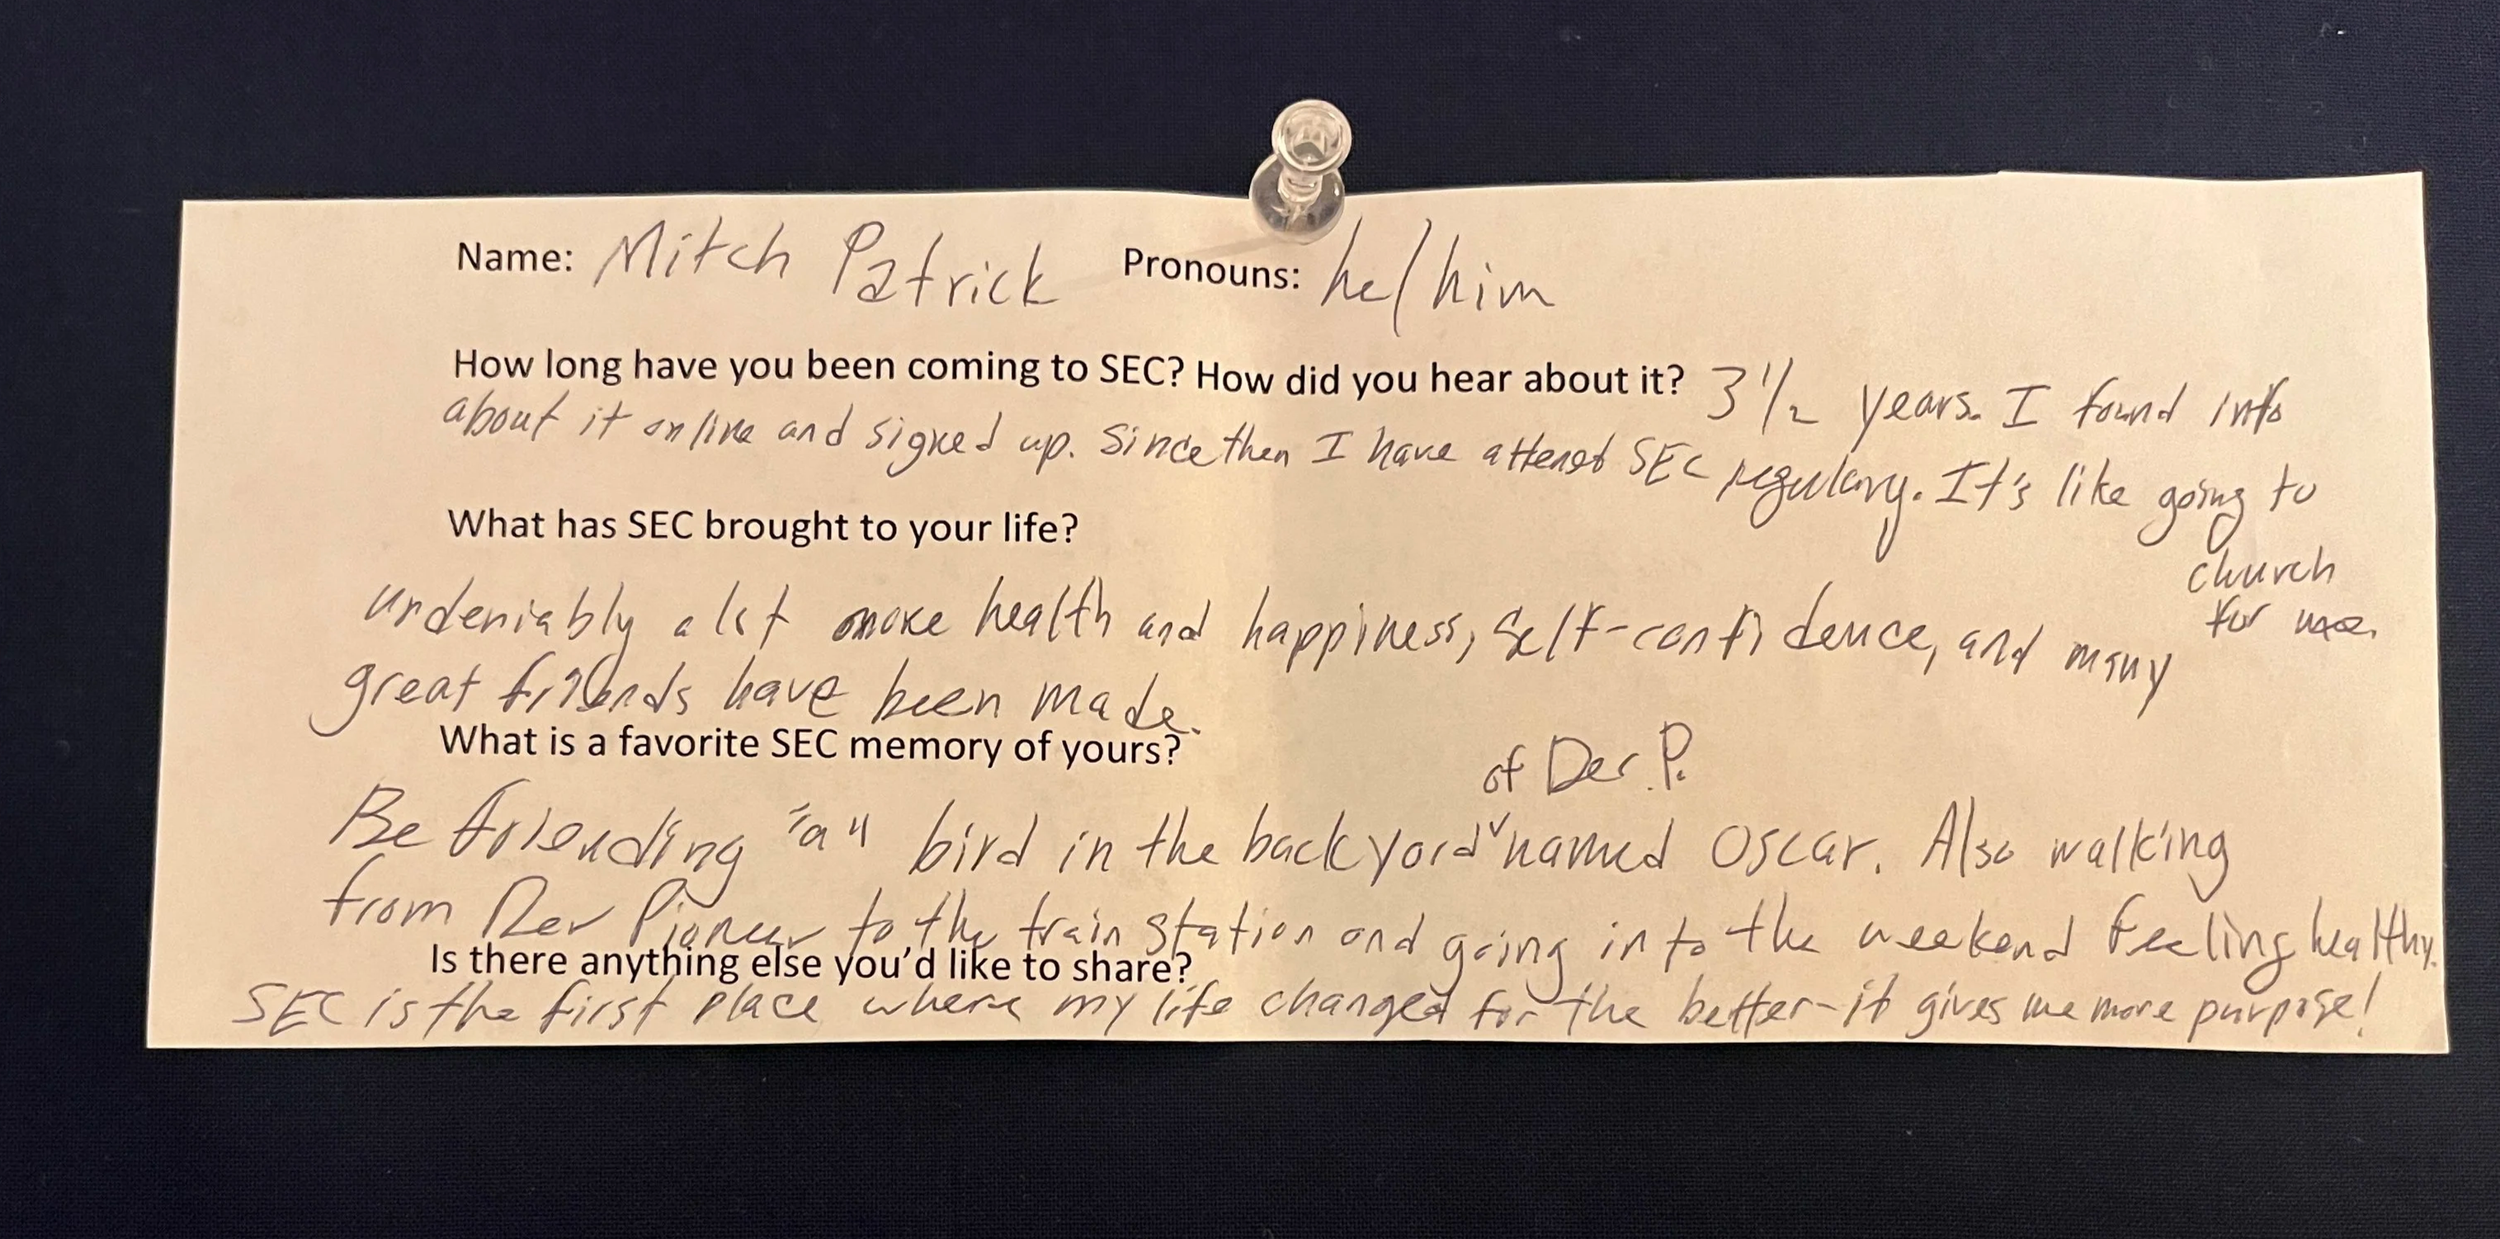 Name: Mitch Patrick Pronouns: he/him
How long have you been coming to SEC? How did you hear about it? 3 1/2 years. I found info
about it online and signed up. Since then I have attend SEC regulary. It's like going to
church
for me.
What has SEC brought to your life?
undeniably a lot more health and happiness, self-confidence, and many
great friends have been made.
What is a favorite SEC memory of yours?
of Der P.
Be friending "a" bird in the backyard ˅ named Oscar. Also walking
from Der Pioneer to the train station and going into the weekend feeling healthy.
Is there anything else you'd like to share?
SEC is the first place where my life changed for the better-it gives me more purpose!